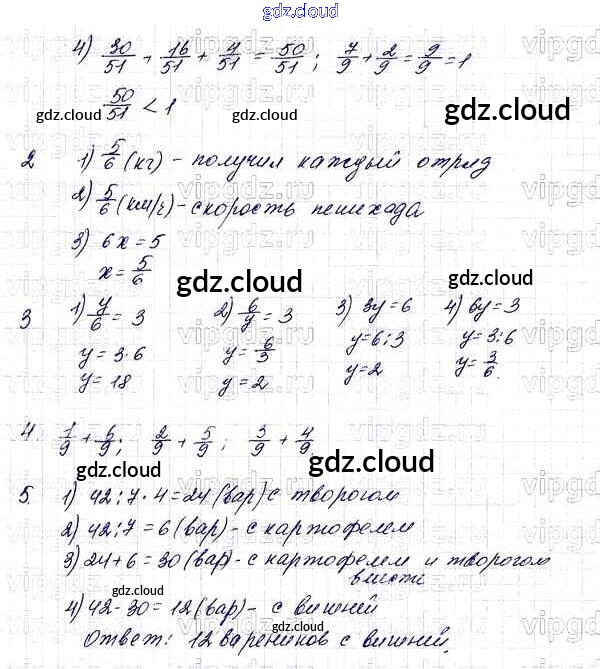 gdz.cloud
4) 30/51 + 16/51 + 4/51 = 50/51 ; 7/9 + 2/9 = 9/9 = 1
50/51 < 1
gdz.cloud gdz.cloud gdz.cloud
2 1) 5/6 (кг) - получил каждый отряд
2) 5/6 (км/ч) - скорость пешехода
3) 6x = 5
x = 5/6
gdz.cloud gdz.cloud
3 1) y/6 = 3 2) 6/y = 3 3) 3y = 6 4) 6y = 3
y = 3·6 y = 6/3 y = 6:3 y = 3:6
y = 18 y = 2 y = 2 y = 3/6
gdz.cloud gdz.cloud
4. 1/9 + 6/9 ; 2/9 + 5/9 ; 3/9 + 4/9
gdz.cloud gdz.cloud
5 1) 42:7·4 = 24 (вар) с творогом
2) 42:7 = 6 (вар) - с картофелем
3) 24+6 = 30 (вар) - с картофелем и творогом
вместе
gdz.cloud
4) 42-30 = 12 (вар) - с вишней
Ответ: 12 вареников с вишней.
gdz.cloud gdz.cloud